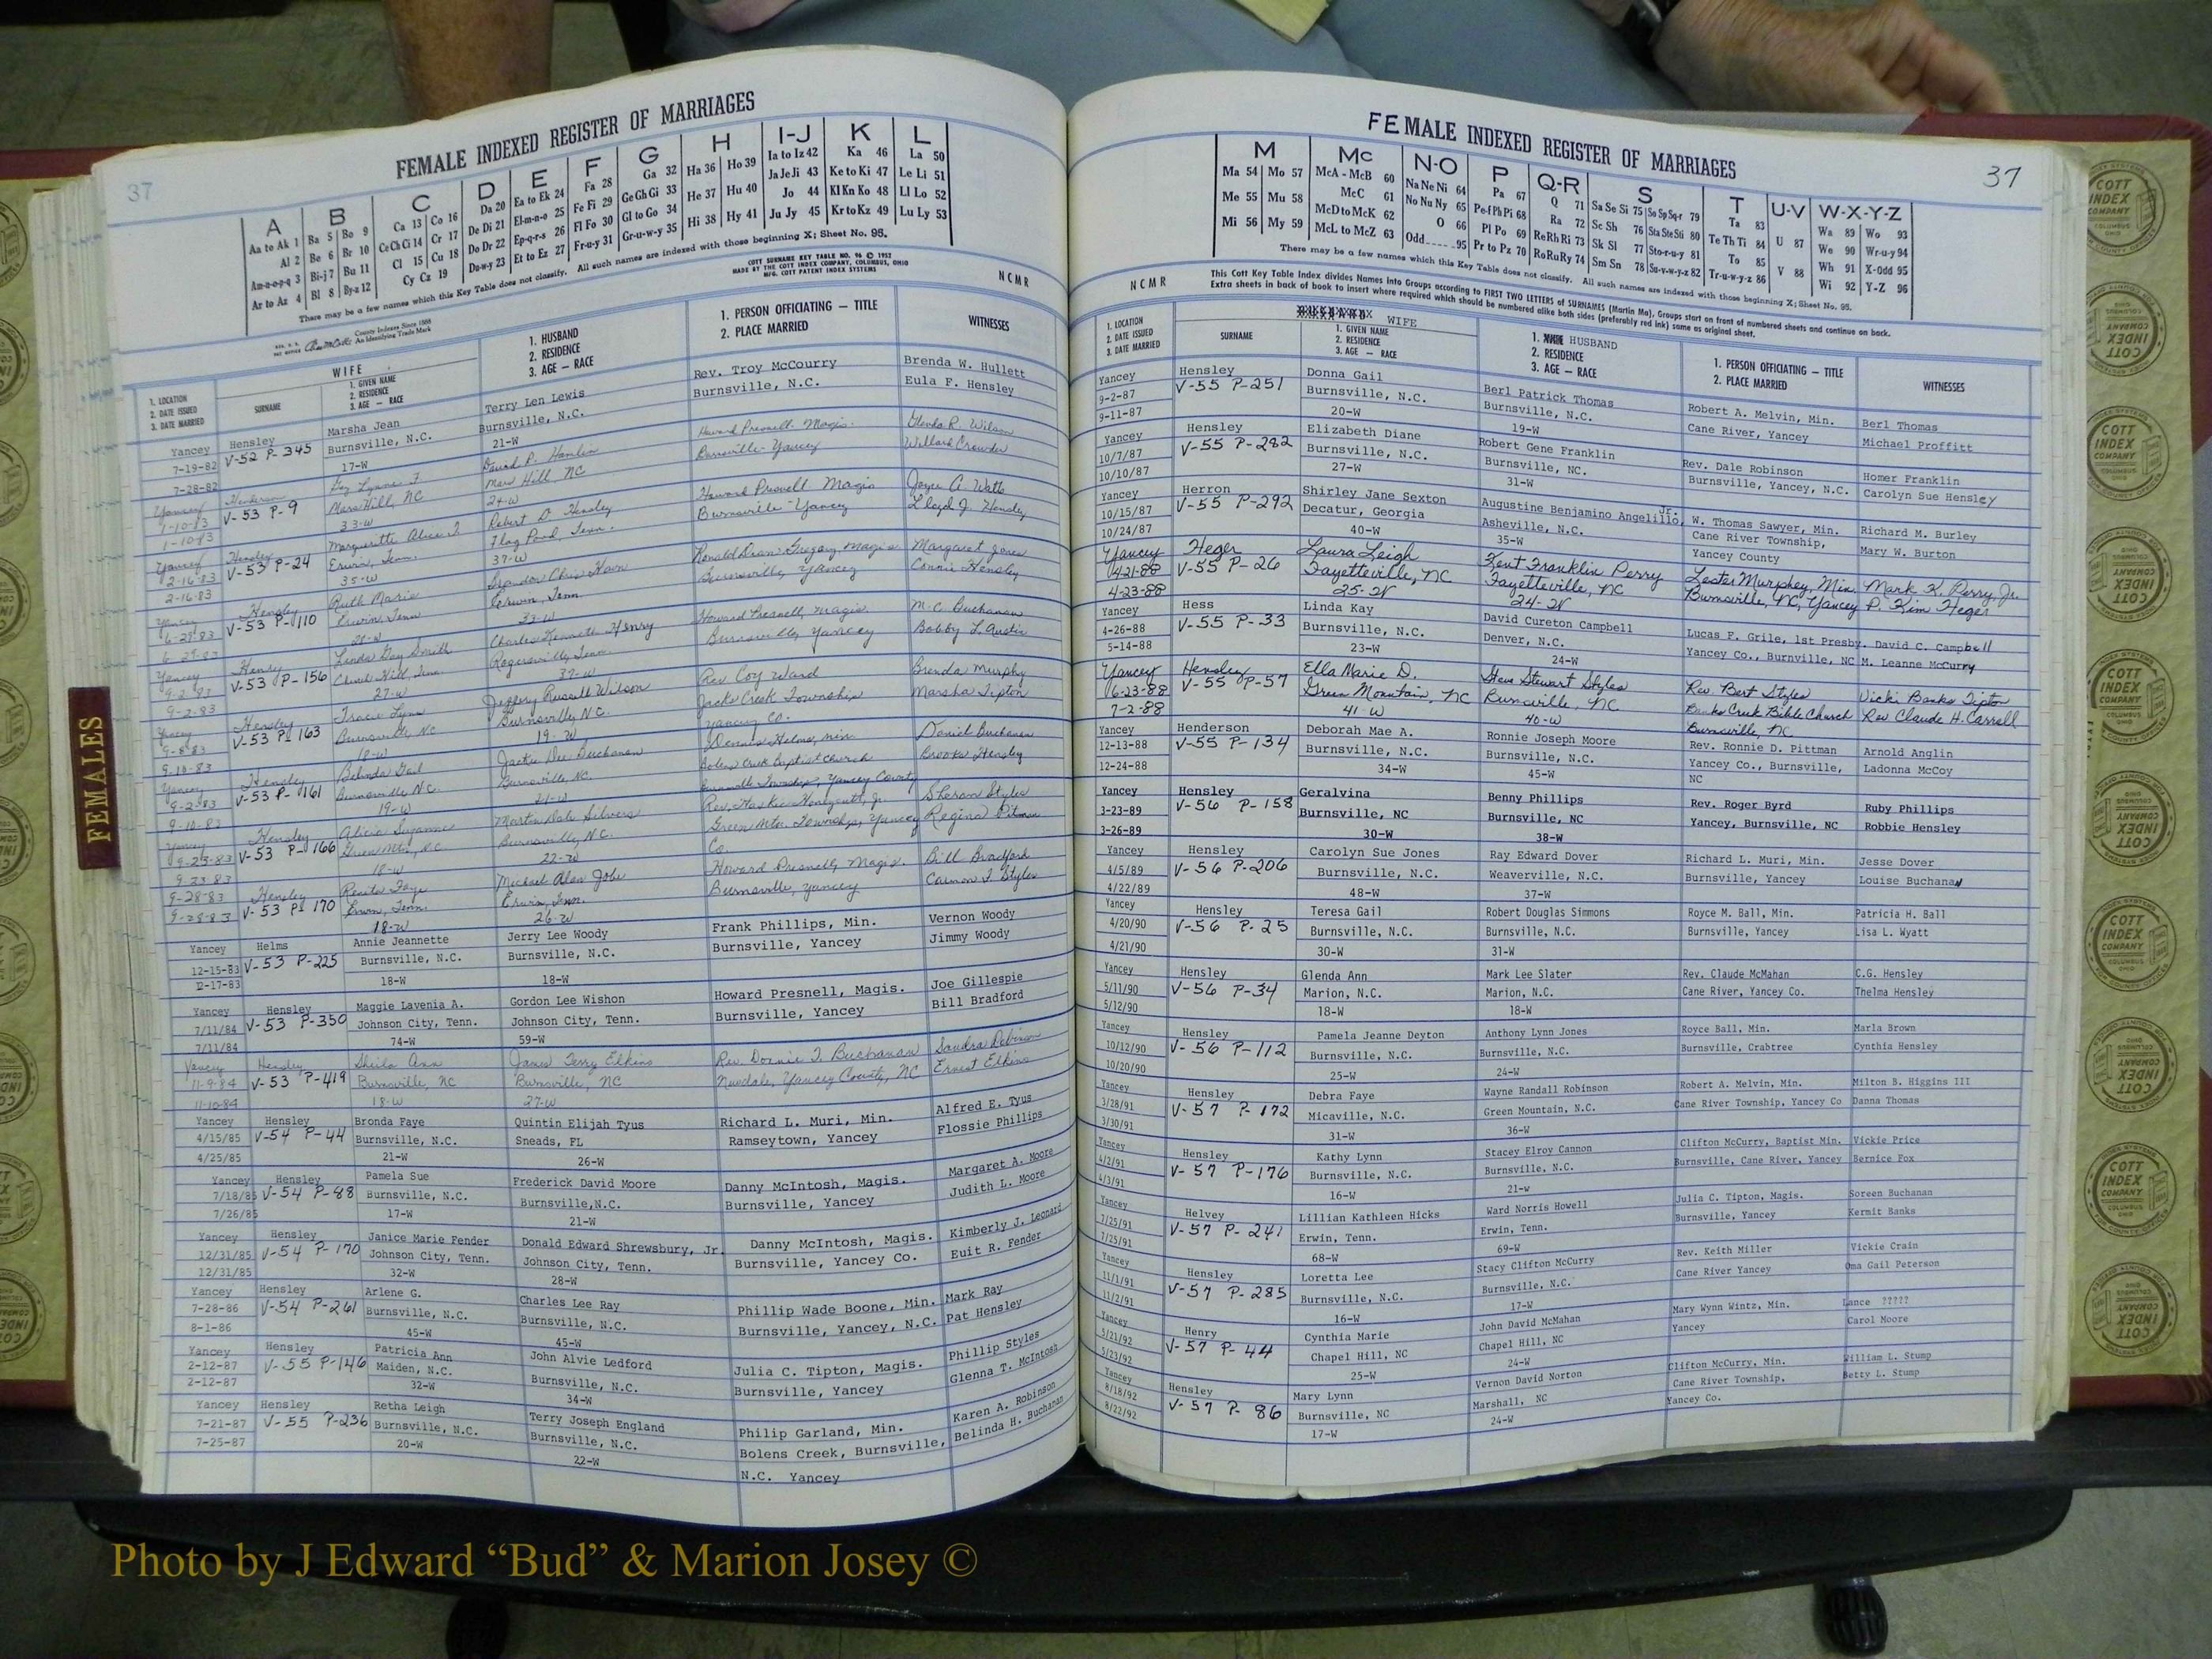 37
FEMALE INDEXED REGISTER OF MARRIAGES
A B C D E F G H I-J K L
Aa to Ak 1 Ba 5 Bo 9 Ca 13 Co 16 Da 20 Ea to Ek 24 Fa 28 Ga 32 Ha 36 Ho 39 Ia to Iz 42 Ka 46 La 50
Al 2 Be 6 Br 10 Ce Ch Ci 14 Cr 17 De Di 21 El-m-n-o 25 Fe Fi 29 Ge Gh Gi 33 He 37 Hu 40 Ja Je Ji 43 Ke to Ki 47 Le Li 51
Am-n-o-p-q 3 Bi-j 7 Bu 11 Cl 15 Cu 18 Do Dr 22 Ep-q-r-s 26 Fl Fo 30 Gl to Go 34 Hi 38 Hy 41 Jo 44 Kl Kn Ko 48 Ll Lo 52
Ar to Az 4 Bl 8 By-z 12 Cy Cz 19 Du-w-y 23 Et to Ez 27 Fr-u-y 31 Gr-u-w-y 35 Ju Jy 45 Kr to Kz 49 Lu Ly 53
There may be a few names which this Key Table does not classify. All such names are indexed with those beginning X; Sheet No. 95.
County Indexes Since 1888
An Identifying Trade Mark
COTT SURNAME KEY TABLE NO. 96 © 1957
MADE BY THE COTT INDEX COMPANY, COLUMBUS, OHIO
MFG. COTT PATENT INDEX SYSTEMS
NCMR
1. LOCATION
2. DATE ISSUED
3. DATE MARRIED
WIFE
SURNAME
1. GIVEN NAME
2. RESIDENCE
3. AGE — RACE
1. HUSBAND
2. RESIDENCE
3. AGE — RACE
1. PERSON OFFICIATING — TITLE
2. PLACE MARRIED
WITNESSES
Yancey Hensley Marsha Jean Terry Len Lewis Rev. Troy McCourry Brenda W. Hullett
7-19-82 V-52 P-345 Burnsville, N.C. Burnsville, N.C. Burnsville, N.C. Eula F. Hensley
7-28-82 17-W 21-W
Yancey Henderson Gay Lynne F. David P. Hamlin Howard Presnell Magis. Glenda R. Wilson
1-10-83 V-53 P-9 Mars Hill, NC Mars Hill NC Burnsville-Yancey Willard Crowder
1-10-83 33-W 24-W
Yancey Hensley Marguerite Alice T. Robert D. Hensley Howard Presnell Magis Joyce A. Watts
2-16-83 V-53 P-24 Erwin, Tenn. Flag Pond, Tenn. Burnsville-Yancey Lloyd J. Hensley
2-16-83 35-W 37-W
Yancey Hensley Ruth Marie Ronald Dean Gregory Magis Margaret Jones
6-29-83 V-53 P-110 Erwin, Tenn Erwin, Tenn Burnsville, Yancey Connie Hensley
6-29-83
Yancey Henry Linda Gay Smith Charles Kenneth Henry Howard Presnell, Magis. M. C. Buchanan
9-2-83 V-53 P-156 Church Hill, Tenn. Rogersville, Tenn Burnsville, Yancey Bobby L. Austin
9-2-83 27-W 37-W
Yancey Hensley Tracie Lynn Jeffery Russell Wilson Rev Coy Ward Brenda Murphy
9-8-83 V-53 P-163 Burnsville, NC Burnsville, N.C. Jacks Creek Township, Marsha Tipton
9-10-83 18-W 19-W Yancey Co.
Yancey Hensley Belinda Gail Jackie Dee Buchanan Dennis Helms, Min Daniel Buchanan
9-2-83 V-53 P-161 Burnsville N.C. Burnsville, NC. Bolens Creek Baptist Church Brooks Hensley
9-10-83 19-W 21-W Burnsville Township, Yancey County
Yancey Hensley Alicia Suzanne Martin Dale Silvers Rev. Haskel Honeycutt, Jr. Sharon Styles
9-23-83 V-53 P-166 Green Mtn., N.C. Burnsville, N.C. Green Mtn. Township, Yancey Regina Pitman
9-23-83 18-W 22-W Co.
9-28-83 Hensley Renita Faye Michael Alan Jobe Howard Presnell, Magis. Bill Bradford
9-28-83 V-53 P-170 Erwin, Tenn. Erwin, Tenn. Burnsville, Yancey Carmon T. Styles
18-W 26-W
Yancey Helms Annie Jeannette Jerry Lee Woody Frank Phillips, Min. Vernon Woody
12-15-83 V-53 P-225 Burnsville, N.C. Burnsville, N.C. Burnsville, Yancey Jimmy Woody
12-17-83 18-W 18-W
Yancey Hensley Maggie Lavenia A. Gordon Lee Wishon Howard Presnell, Magis. Joe Gillespie
7/11/84 V-53 P-350 Johnson City, Tenn. Johnson City, Tenn. Burnsville, Yancey Bill Bradford
7/11/84 74-W 59-W
Yancey Hensley Sheila Ann James Terry Elkins Rev. Donnie T. Buchanan Sandra Robinson
11-9-84 V-53 P-419 Burnsville, NC Burnsville, NC Newdale, Yancey County, NC Ernest Elkins
11-10-84 18-W 27-W
Yancey Hensley Bronda Faye Quintin Elijah Tyus Richard L. Muri, Min. Alfred E. Tyus
4/15/85 V-54 P-44 Burnsville, N.C. Sneads, FL Ramseytown, Yancey Flossie Phillips
4/25/85 21-W 26-W
Yancey Hensley Pamela Sue Frederick David Moore Danny McIntosh, Magis. Margaret A. Moore
7/18/85 V-54 P-88 Burnsville, N.C. Burnsville,N.C. Burnsville, Yancey Judith L. Moore
7/26/85 17-W 21-W
Yancey Hensley Janice Marie Fender Donald Edward Shrewsbury, Jr. Danny McIntosh, Magis. Kimberly J. Leonard
12/31/85 V-54 P-170 Johnson City, Tenn. Johnson City, Tenn. Burnsville, Yancey Co. Euit R. Fender
12/31/85 32-W 28-W
Yancey Hensley Arlene G. Charles Lee Ray Phillip Wade Boone, Min. Mark Ray
7-28-86 V-54 P-261 Burnsville, N.C. Burnsville, N.C. Burnsville, Yancey, N.C. Pat Hensley
8-1-86 45-W 45-W
Yancey Hensley Patricia Ann John Alvie Ledford Julia C. Tipton, Magis. Phillip Styles
2-12-87 V-55 P-146 Maiden, N.C. Burnsville, N.C. Burnsville, Yancey Glenna T. McIntosh
2-12-87 32-W 34-W
Yancey Hensley Retha Leigh Terry Joseph England Philip Garland, Min. Karen A. Robinson
7-21-87 V-55 P-236 Burnsville, N.C. Burnsville, N.C. Bolens Creek, Burnsville, Belinda H. Buchanan
7-25-87 20-W 22-W N.C. Yancey
FEMALE INDEXED REGISTER OF MARRIAGES
37
M Mc N-O P Q-R S T U-V W-X-Y-Z
Ma 54 Mo 57 McA - McB 60 Na Ne Ni 64 Pa 67 Q 71 Sa Se Si 75 So Sp Sq-r 79 Ta 83 U 87 Wa 89 Wo 93
Me 55 Mu 58 McC 61 No Nu Ny 65 Pe-f Ph Pi 68 Ra 72 Sc Sh 76 Sta Ste Sti 80 Te Th Ti 84 V 88 We 90 Wr-u-y 94
Mi 56 My 59 McD to McK 62 O 66 Pl Po 69 Re Rh Ri 73 Sk Sl 77 Sto-r-u-y 81 To 85 Wh 91 X-Odd 95
McL to McZ 63 Odd 95 Pr to Pz 70 Ro Ru Ry 74 Sm Sn 78 Su-v-w-y-z 82 Tr-u-w-y-z 86 Wi 92 Y-Z 96
There may be a few names which this Key Table does not classify. All such names are indexed with those beginning X; Sheet No. 95.
NCMR
This Cott Key Table Index divides Names into Groups according to FIRST TWO LETTERS of SURNAMES (Martin Ma), Groups start on front of numbered sheets and continue on back.
Extra sheets in back of book to insert where required which should be numbered alike both sides (preferably red ink) same as original sheet.
1. LOCATION
2. DATE ISSUED
3. DATE MARRIED
SURNAME
WIFE
1. GIVEN NAME
2. RESIDENCE
3. AGE — RACE
1. HUSBAND
2. RESIDENCE
3. AGE — RACE
1. PERSON OFFICIATING — TITLE
2. PLACE MARRIED
WITNESSES
Yancey Hensley Donna Gail Berl Patrick Thomas Robert A. Melvin, Min. Berl Thomas
9-2-87 V-55 P-251 Burnsville, N.C. Burnsville, N.C. Cane River, Yancey Michael Proffitt
9-11-87 20-W 19-W
Yancey Hensley Elizabeth Diane Robert Gene Franklin Rev. Dale Robinson Homer Franklin
10/7/87 V-55 P-282 Burnsville, N.C. Burnsville, NC. Burnsville, Yancey, N.C. Carolyn Sue Hensley
10/10/87 27-W 31-W
Yancey Herron Shirley Jane Sexton Augustine Benjamino Angelillo, Jr. W. Thomas Sawyer, Min. Richard M. Burley
10/15/87 V-55 P-292 Decatur, Georgia Asheville, N.C. Cane River Township, Mary W. Burton
10/24/87 40-W 35-W Yancey County
Yancey Heger Laura Leigh Kent Franklin Perry Lester Murphey, Min. Mark K. Perry, Jr.
4-21-88 V-55 P-26 Fayetteville, NC Fayetteville, NC Burnsville, NC, Yancey P. Kim Heger
4-23-88 25-W 24-W
Yancey Hess Linda Kay David Cureton Campbell Lucas F. Grile, 1st Presby. David C. Campbell
4-26-88 V-55 P-33 Burnsville, N.C. Denver, N.C. Yancey Co., Burnsville, NC M. Leanne McCurry
5-14-88 23-W 24-W
Yancey Hensley Ella Marie D. Steve Stewart Styles Rev. Bert Styles Vicki Banks Tipton
6-23-88 V-55 P-57 Green Mountain, NC Burnsville, NC Banks Creek Bible Church Rev. Claude H. Carroll
7-2-88 41-W 40-W Burnsville, NC
Yancey Henderson Deborah Mae A. Ronnie Joseph Moore Rev. Ronnie D. Pittman Arnold Anglin
12-13-88 V-55 P-134 Burnsville, N.C. Burnsville, N.C. Yancey Co., Burnsville, Ladonna McCoy
12-24-88 34-W 45-W NC
Yancey Hensley Geralvina Benny Phillips Rev. Roger Byrd Ruby Phillips
3-23-89 V-56 P-158 Burnsville, NC Burnsville, NC Yancey, Burnsville, NC Robbie Hensley
3-26-89 30-W 38-W
Yancey Hensley Carolyn Sue Jones Ray Edward Dover Richard L. Muri, Min. Jesse Dover
4/5/89 V-56 P-206 Burnsville, N.C. Weaverville, N.C. Burnsville, Yancey Louise Buchanan
4/22/89 48-W 37-W
Yancey Hensley Teresa Gail Robert Douglas Simmons Royce M. Ball, Min. Patricia H. Ball
4/20/90 V-56 P-25 Burnsville, N.C. Burnsville, N.C. Burnsville, Yancey Lisa L. Wyatt
4/21/90 30-W 31-W
Yancey Hensley Glenda Ann Mark Lee Slater Rev. Claude McMahan C.G. Hensley
5/11/90 V-56 P-34 Marion, N.C. Marion, N.C. Cane River, Yancey Co. Thelma Hensley
5/12/90 18-W 18-W
Yancey Hensley Pamela Jeanne Deyton Anthony Lynn Jones Royce Ball, Min. Marla Brown
10/12/90 V-56 P-112 Burnsville, N.C. Burnsville, N.C. Burnsville, Crabtree Cynthia Hensley
10/20/90 25-W 24-W
Yancey Hensley Debra Faye Wayne Randall Robinson Robert A. Melvin, Min. Milton B. Higgins III
3/28/91 V-57 P-172 Micaville, N.C. Green Mountain, N.C. Cane River Township, Yancey Co Danna Thomas
3/30/91 31-W 36-W
Yancey Hensley Kathy Lynn Stacey Elroy Cannon Clifton McCurry, Baptist Min. Vickie Price
4/2/91 V-57 P-176 Burnsville, N.C. Burnsville, N.C. Burnsville, Cane River, Yancey Bernice Fox
4/3/91 16-W 21-w
Yancey Helvey Lillian Kathleen Hicks Ward Norris Howell Julia C. Tipton, Magis. Soreen Buchanan
7/25/91 V-57 P-241 Erwin, Tenn. Erwin, Tenn. Burnsville, Yancey Kermit Banks
7/25/91 68-W 69-W
Yancey Hensley Loretta Lee Stacy Clifton McCurry Rev. Keith Miller Vickie Crain
11/1/91 V-57 P-285 Burnsville, N.C. Burnsville, N.C. Cane River Yancey Oma Gail Peterson
11/2/91 16-W 17-W
Yancey Henry Cynthia Marie John David McMahan Mary Wynn Wintz, Min. Lance ?????
5/21/92 V-57 P-44 Chapel Hill, NC Chapel Hill, NC Yancey Carol Moore
5/23/92 25-W 24-W
Yancey Hensley Mary Lynn Vernon David Norton Clifton McCurry, Min. William L. Stump
8/18/92 V-57 P-86 Burnsville, NC Marshall, NC Cane River Township, Betty L. Stump
8/22/92 17-W 24-W Yancey Co.
FEMALES
COTT INDEX COMPANY COLUMBUS OHIO
Photo by J Edward “Bud” & Marion Josey ©